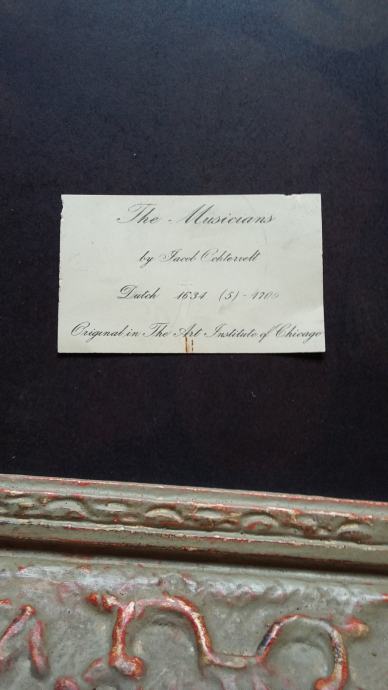 The Musicians
by Jacob Ochtervelt
Dutch 1634 (5) - 1709
Original in The Art Institute of Chicago